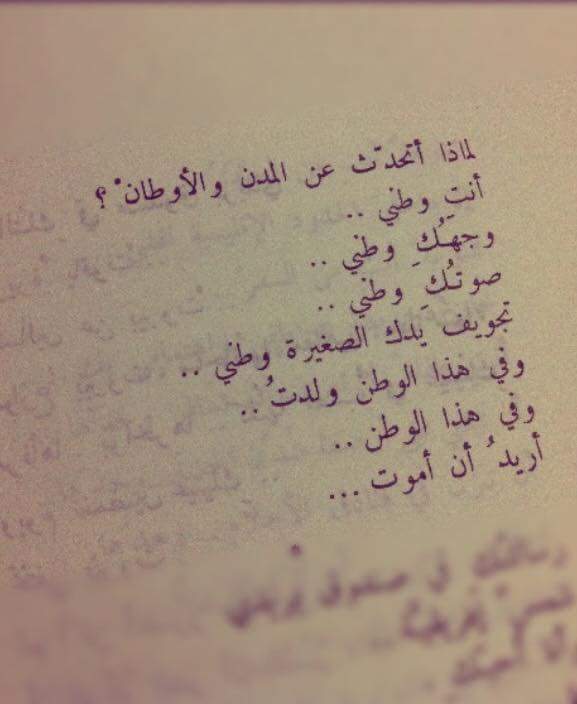 لماذا أتحدّث عن المدن والأوطانْ ؟
أنتِ وطني ..
وجهُكِ وطني ..
صوتُكِ وطني ..
تجويف يدك الصغيرة وطني ..
وفي هذا الوطن ولدتُ ..
وفي هذا الوطن ..
أريدُ أن أموت ...
*
رسائلك في صندوق بريدي